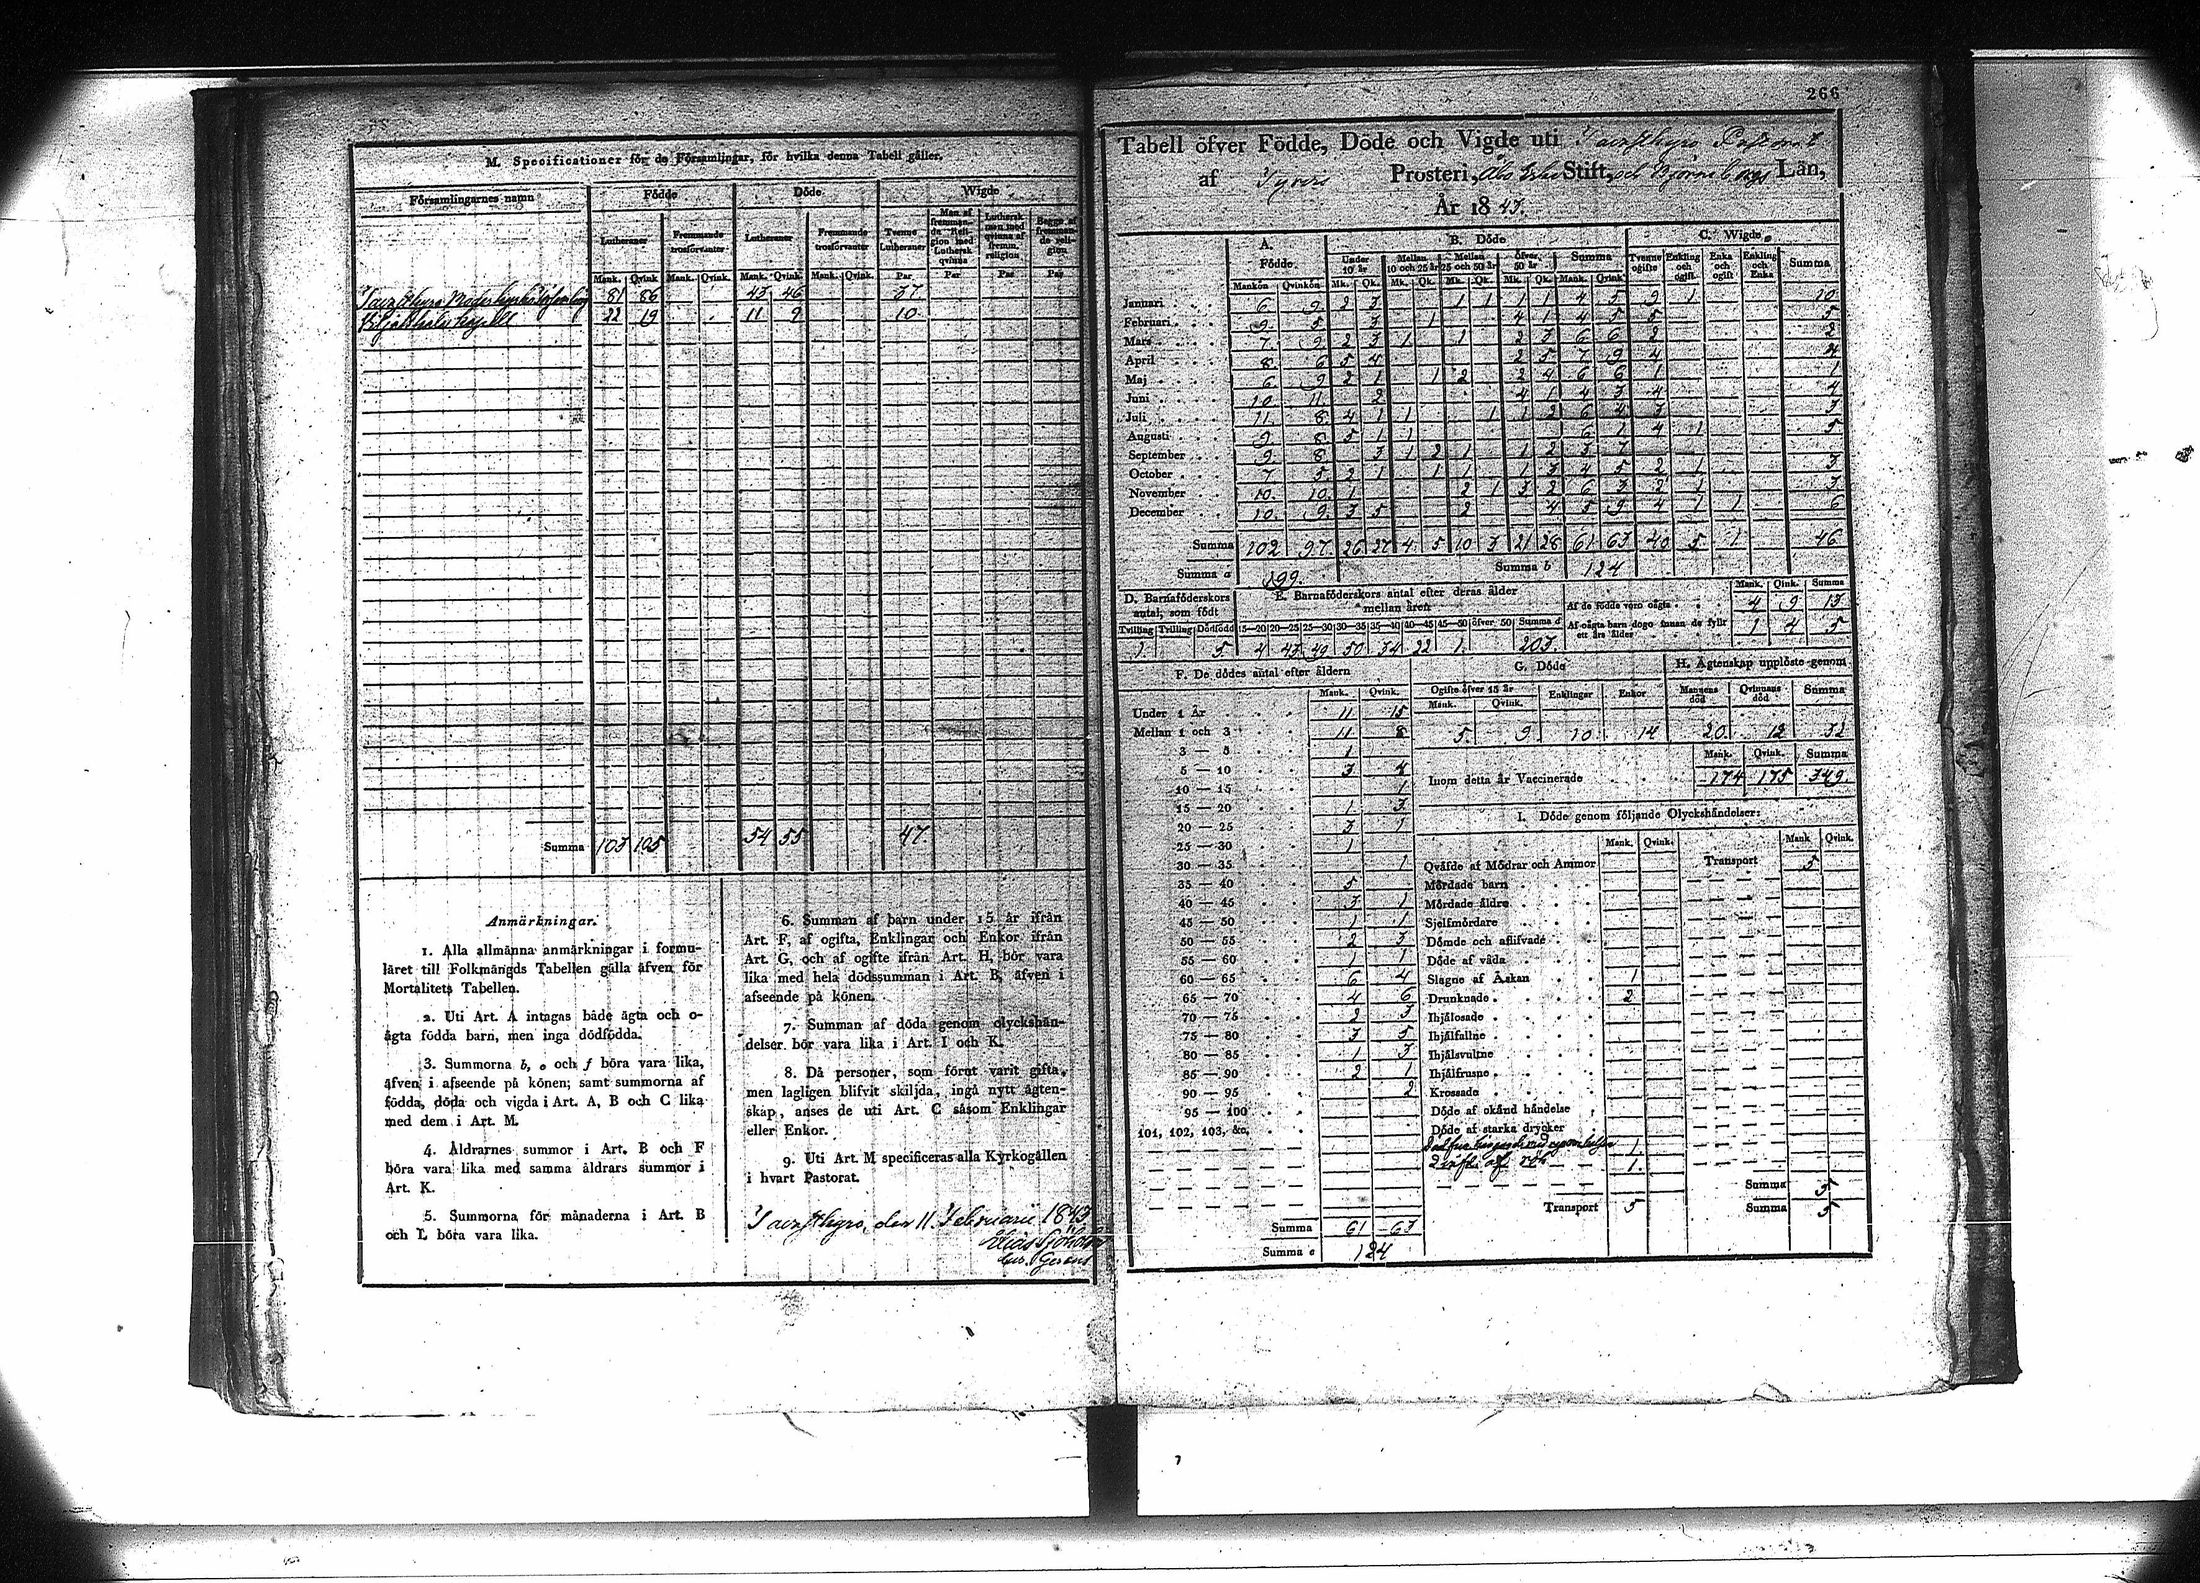 M. Specificationer för de Församlingar, för hvilka denna Tabell gäller.
Församlingarnes namn Födde Döde Wigde
Lutheraner Fremmande trosförvanter Lutheraner Fremmande trosförvanter Tvenne Lutheraner Man af fremmande Religion med Luthersk qvinna Luthersk man med qvinna af fremm. religion Begge af fremmande religion
Mank. Qvink Mank. Qvink. Mank. Qvink. Mank. Qvink. Par Par Par Par
81 86 43 46 37
kapell 22 19 11 9 10
Summa 103 105 54 55 47
Anmärkningar.
1. Alla allmänna anmärkningar i formu-
läret till Folkmängds Tabellen gälla äfven för
Mortalitets Tabellen.
2. Uti Art. A intagas både ägta och o-
ägta födda barn, men inga dödfödda.
3. Summorna b, e och f böra vara lika,
äfven i afseende på könen; samt summorna af
födda, döda och vigda i Art. A, B och C lika
med dem i Art. M.
4. Åldrarnes summor i Art. B och F
böra vara lika med samma åldrars summor i
Art. K.
5. Summorna för månaderna i Art. B
och L böra vara lika.
6. Summan af barn under 15 år ifrån
Art. F, af ogifta, Enklingar och Enkor ifrån
Art. G, och af ogifte ifrån Art. H, bör vara
lika med hela dödssumman i Art. B, äfven i
afseende på könen.
7. Summan af döda genom olyckshän-
delser bör vara lika i Art. I och K.
8. Då personer, som förut varit gifta,
men lagligen blifvit skiljda, ingå nytt ägten-
skap, anses de uti Art. C såsom Enklingar
eller Enkor.
9. Uti Art. M specificeras alla Kyrkogällen
i hvart Pastorat.
Tavastkyro, den 11 Februarii 1843
266
Tabell öfver Födde, Döde och Vigde uti Tavastkyro Pastorat
af Tyrvis Prosteri, Åbo Erke Stift, och Björneborgs Län,
År 1843.
A. Födde. B. Döde C. Wigde
Under 10 år Mellan 10 och 25 år Mellan 25 och 50 år Öfver 50 år Summa Tvenne ogifte Enkling och ogift Enka och ogift Enkling och Enka Summa
Mankön Qvinkön Mk. Qk. Mk. Qk. Mk. Qk. Mk. Qk. Mank. Qvink
Januari 6 9 2 3 1 1 1 1 4 5 9 1 10
Februari 9 5 3 1 4 1 4 5 5 5
Mars 7 9 2 3 1 1 2 3 6 6 2 2
April 8 6 5 4 2 5 7 9 4 4
Maj 6 9 2 1 1 2 2 4 6 6 1 1
Juni 10 11 2 4 1 4 3 4 4
Juli 11 8 4 1 1 1 1 2 6 4 3 3
Augusti 9 8 5 1 1 6 1 4 1 5
September 9 8 3 1 2 1 1 2 3 7
October 7 5 2 1 1 1 1 3 4 5 2 1 3
November 10 10 1 2 1 3 2 6 3 2 1 3
December 10 9 3 5 2 4 5 9 4 1 1 6
Summa 102 97 26 27 4 5 10 3 21 28 61 63 40 5 1 46
Summa a 199. Summa b 124
D. Barnaföderskors antal, som födt E. Barnaföderskors antal efter deras ålder mellan åren Mank. Qink. Summa
Af de födde voro oägta 4 9 13
Tvilling Trilling Dödfödd 15—20 20—25 25—30 30—35 35—40 40—45 45—50 öfver 50 Summa d Af oägta barn dogo innan de fyllt ett års ålder 1 4 5
1. 5 4 43 49 50 34 22 1. 203.
F. De dödes antal efter åldern G. Döde H. Ägtenskap upplöste genom
Mank. Qvink. Ogifte öfver 15 år Mank. Qvink. Enklingar Enkor Mannens död Qvinnans död Summa
Under 1 År 11 15
Mellan 1 och 3 11 8 5 9 10 14 20 12 32
3 — 5 1
Mank. Qvink. Summa
5 — 10 3 4 Inom detta år Vaccinerade 174 175 349.
10 — 15 1
15 — 20 1 3 I. Döde genom följande Olyckshändelser:
20 — 25 3 1
25 — 30 1 Mank. Qvink. Mank Qvink.
30 — 35 1 Qväfde af Mödrar och Ammor Transport 5
35 — 40 5 Mördade barn
40 — 45 3 1 Mördade äldre
45 — 50 1 1 Sjelfmördare
50 — 55 2 3 Dömde och aflifvade
55 — 60 1 1 Döde af våda
60 — 65 6 4 Slagne af Åskan 1
65 — 70 4 6 Drunknade 2
70 — 75 2 3 Ihjälosade
75 — 80 3 5 Ihjälfallne
80 — 85 1 3 Ihjälsvultne
85 — 90 2 1 Ihjälfrusne
90 — 95 2 Krossade
95 — 100 Döde af okänd händelse
101, 102, 103, &c. Döde af starka drycker
1.
1.
Summa 5
Transport 5 Summa 5
Summa 61 63
Summa e 124